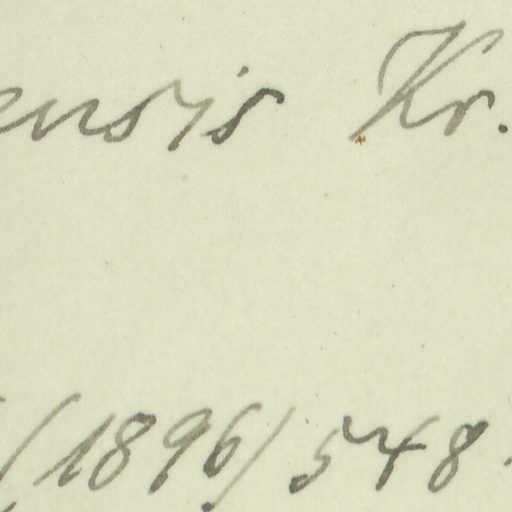 ensis Kr.
(1896) 548.